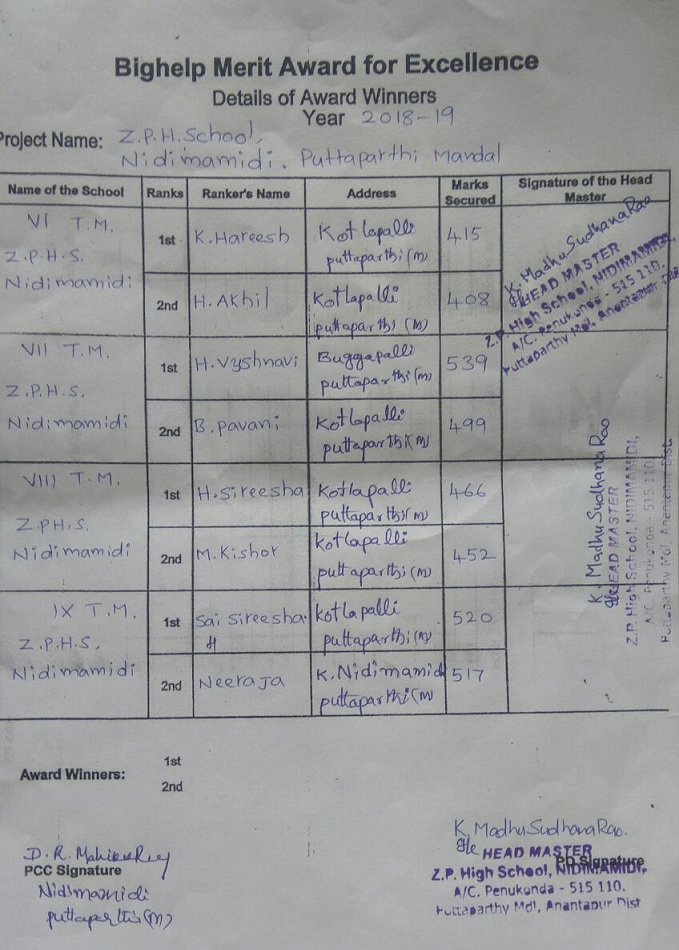 Bighelp Merit Award for Excellence
Details of Award Winners
Year 2018-19
Project Name: Z.P.H.School,
Nidimamidi. Puttaparthi Mandal
Name of the School Ranks Ranker's Name Address Marks Secured Signature of the Head Master
VI T.M.
Z.P.H.S.
Nidimamidi
1st K.Hareesh Kotlapalli 415
puttaparthi(m)
2nd H.Akhil Kotlapalli 408
puttaparthi (M)
K. Madhu Sudhana Rao
HEAD MASTER
Z.P. High School, NIDIMAMIDI,
A/C. Penukonda - 515 110.
Puttaparthy Mdl, Anantapur Dist
VII T.M.
Z.P.H.S.
Nidimamidi
1st H.Vyshnavi Buggapalli 539
puttaparthi(m)
2nd B.pavani Kotlapalli 499
puttaparthi(m)
VIII T.M.
Z.PH.S.
Nidimamidi
1st H.Sireesha Kotlapalli 466
puttaparthi(m)
2nd M.Kishor kotlapalli 452
puttaparthi(m)
K. Madhu Sudhana Rao
HEAD MASTER
Z.P. High School, NIDIMAMIDI,
A/C. Penukonda - 515 110
Puttaparthy Mdl, Anantapur Dist
IX T.M.
Z.P.H.S,
Nidimamidi
1st Sai Sireesha Kotlapalli 520
H puttaparthi(m)
2nd Neeraja K.Nidimamid 517
puttaparthi(m)
Award Winners: 1st
2nd
D.R.
PCC Signature
Nidimamidi
puttaparthi(m)
K. Madhu Sudhana Rao.
HEAD MASTER
PD Signature
Z.P. High School, NIDIMAMIDI,
A/C. Penukonda - 515 110.
Puttaparthy Mdl, Anantapur Dist